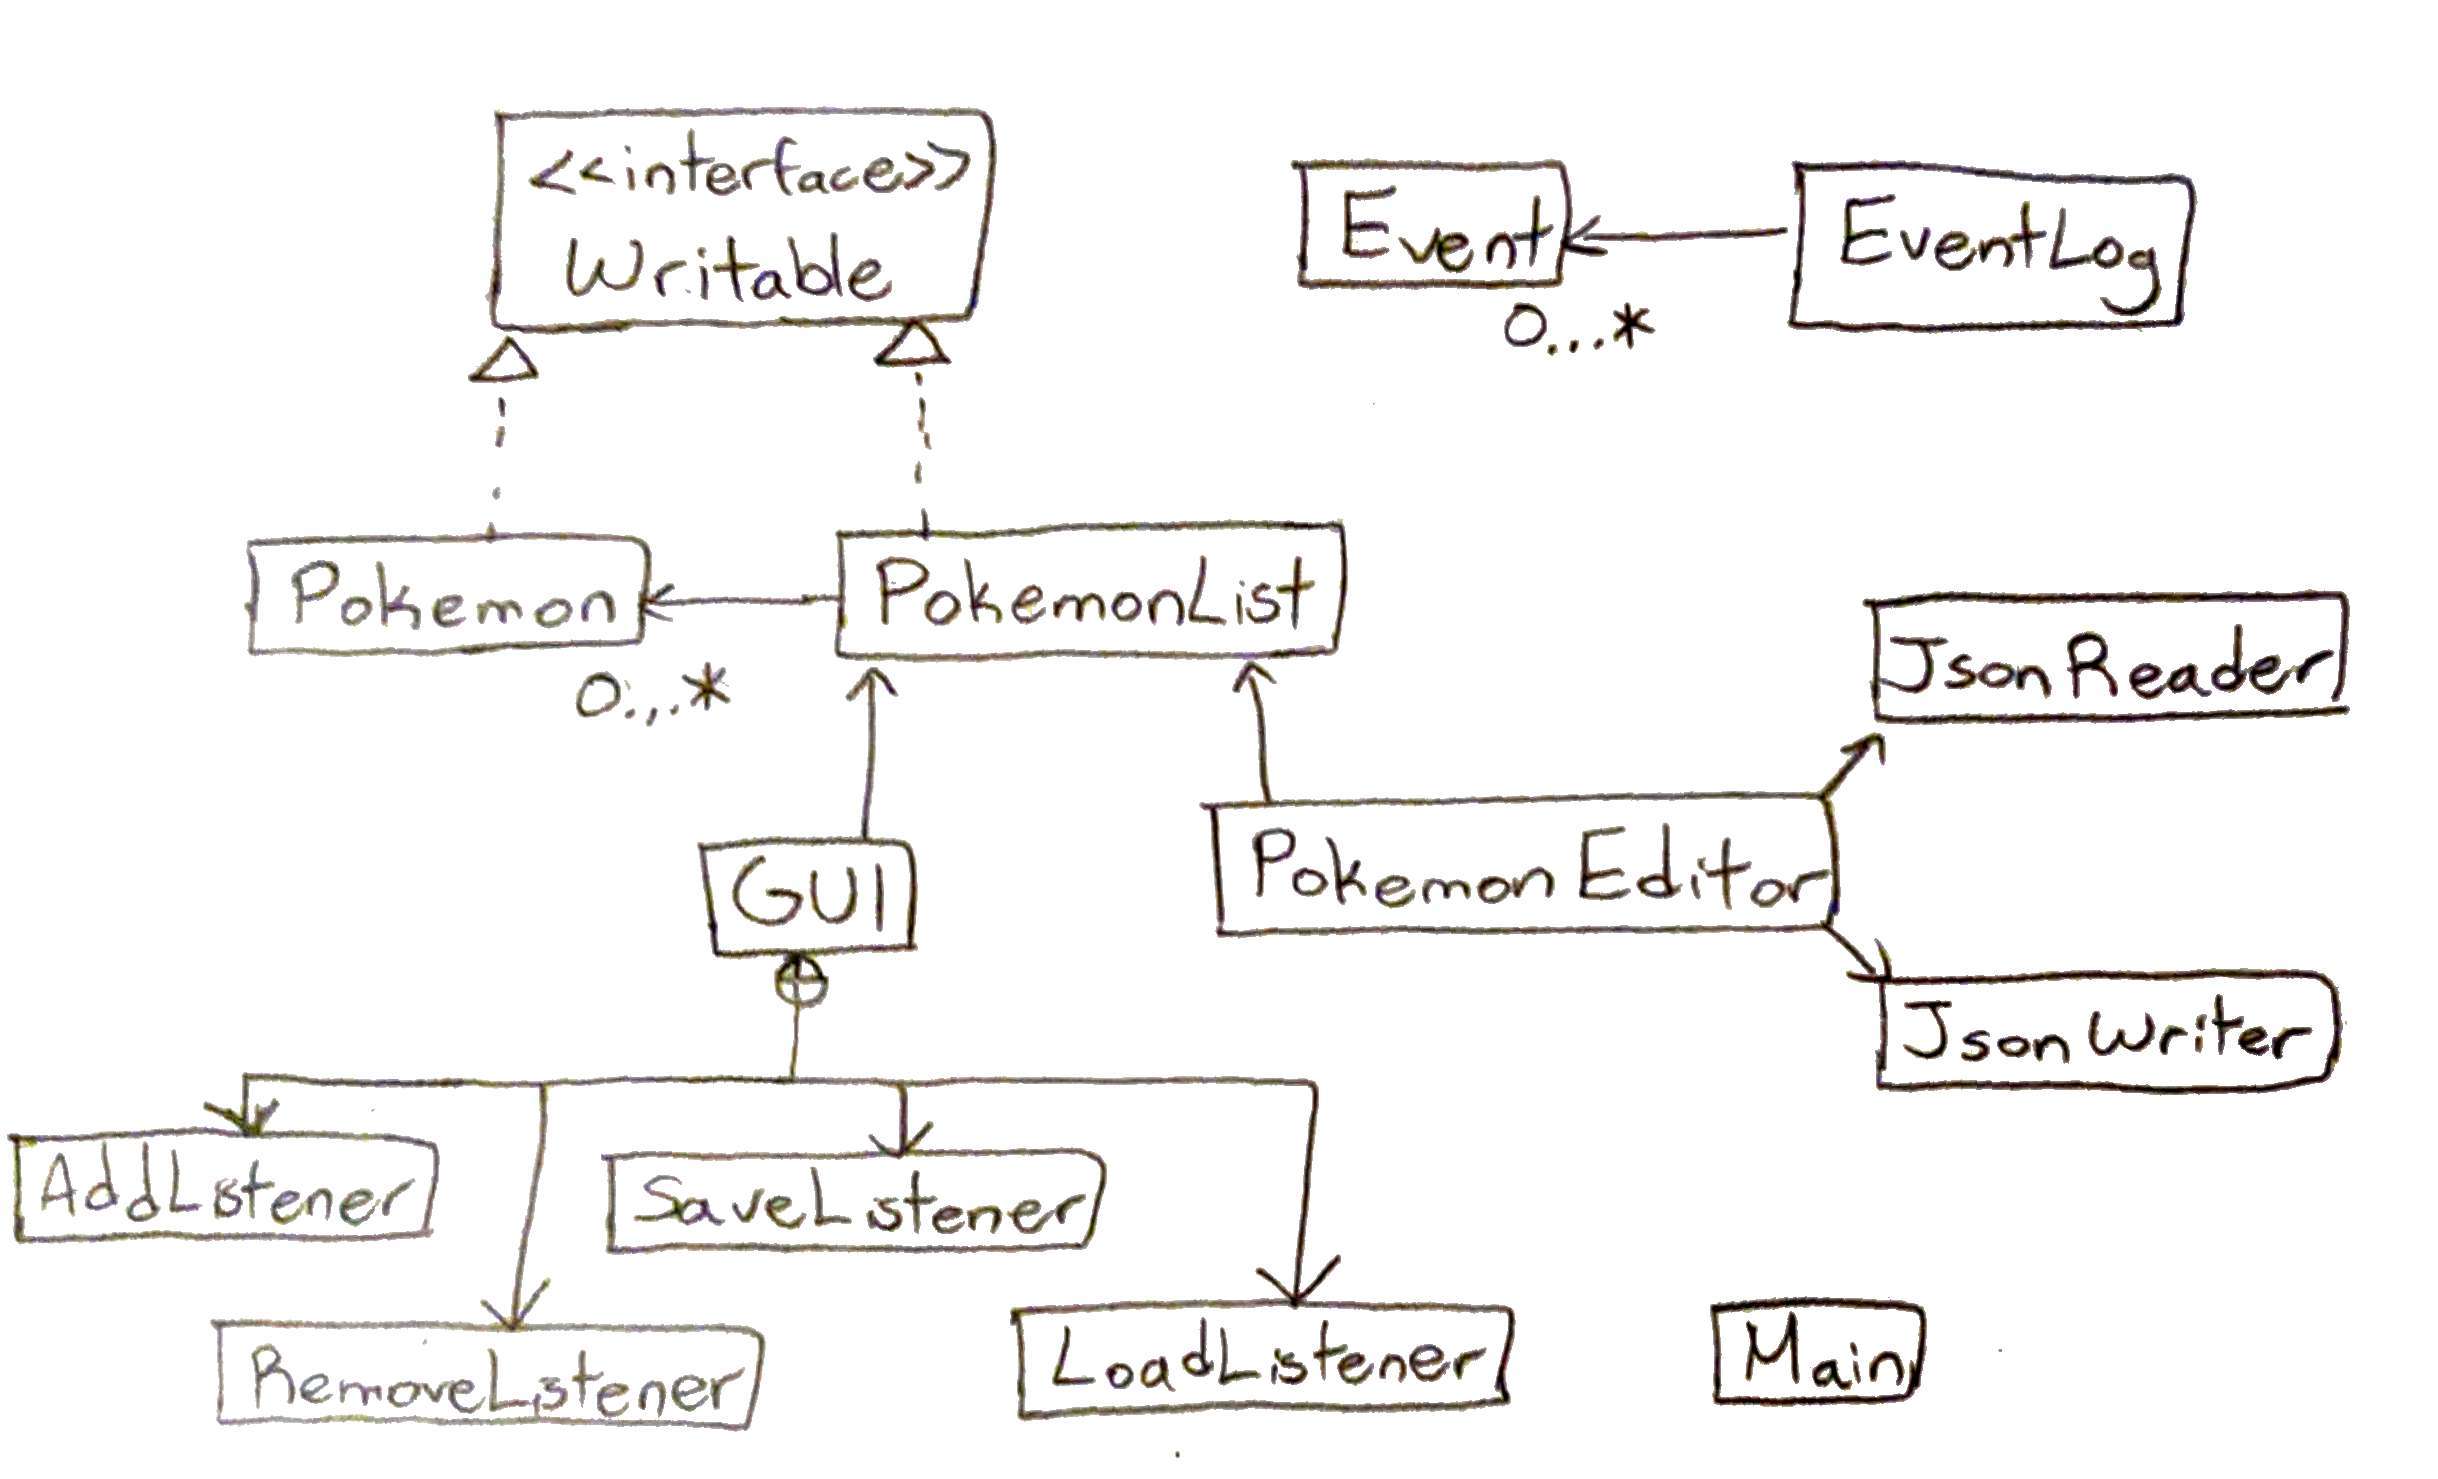 <<interface>>
Writable
Event
EventLog
0...*
Pokemon
PokemonList
0...*
JsonReader
GUI
Pokemon Editor
JsonWriter
AddListener
SaveListener
RemoveListener
LoadListener
Main